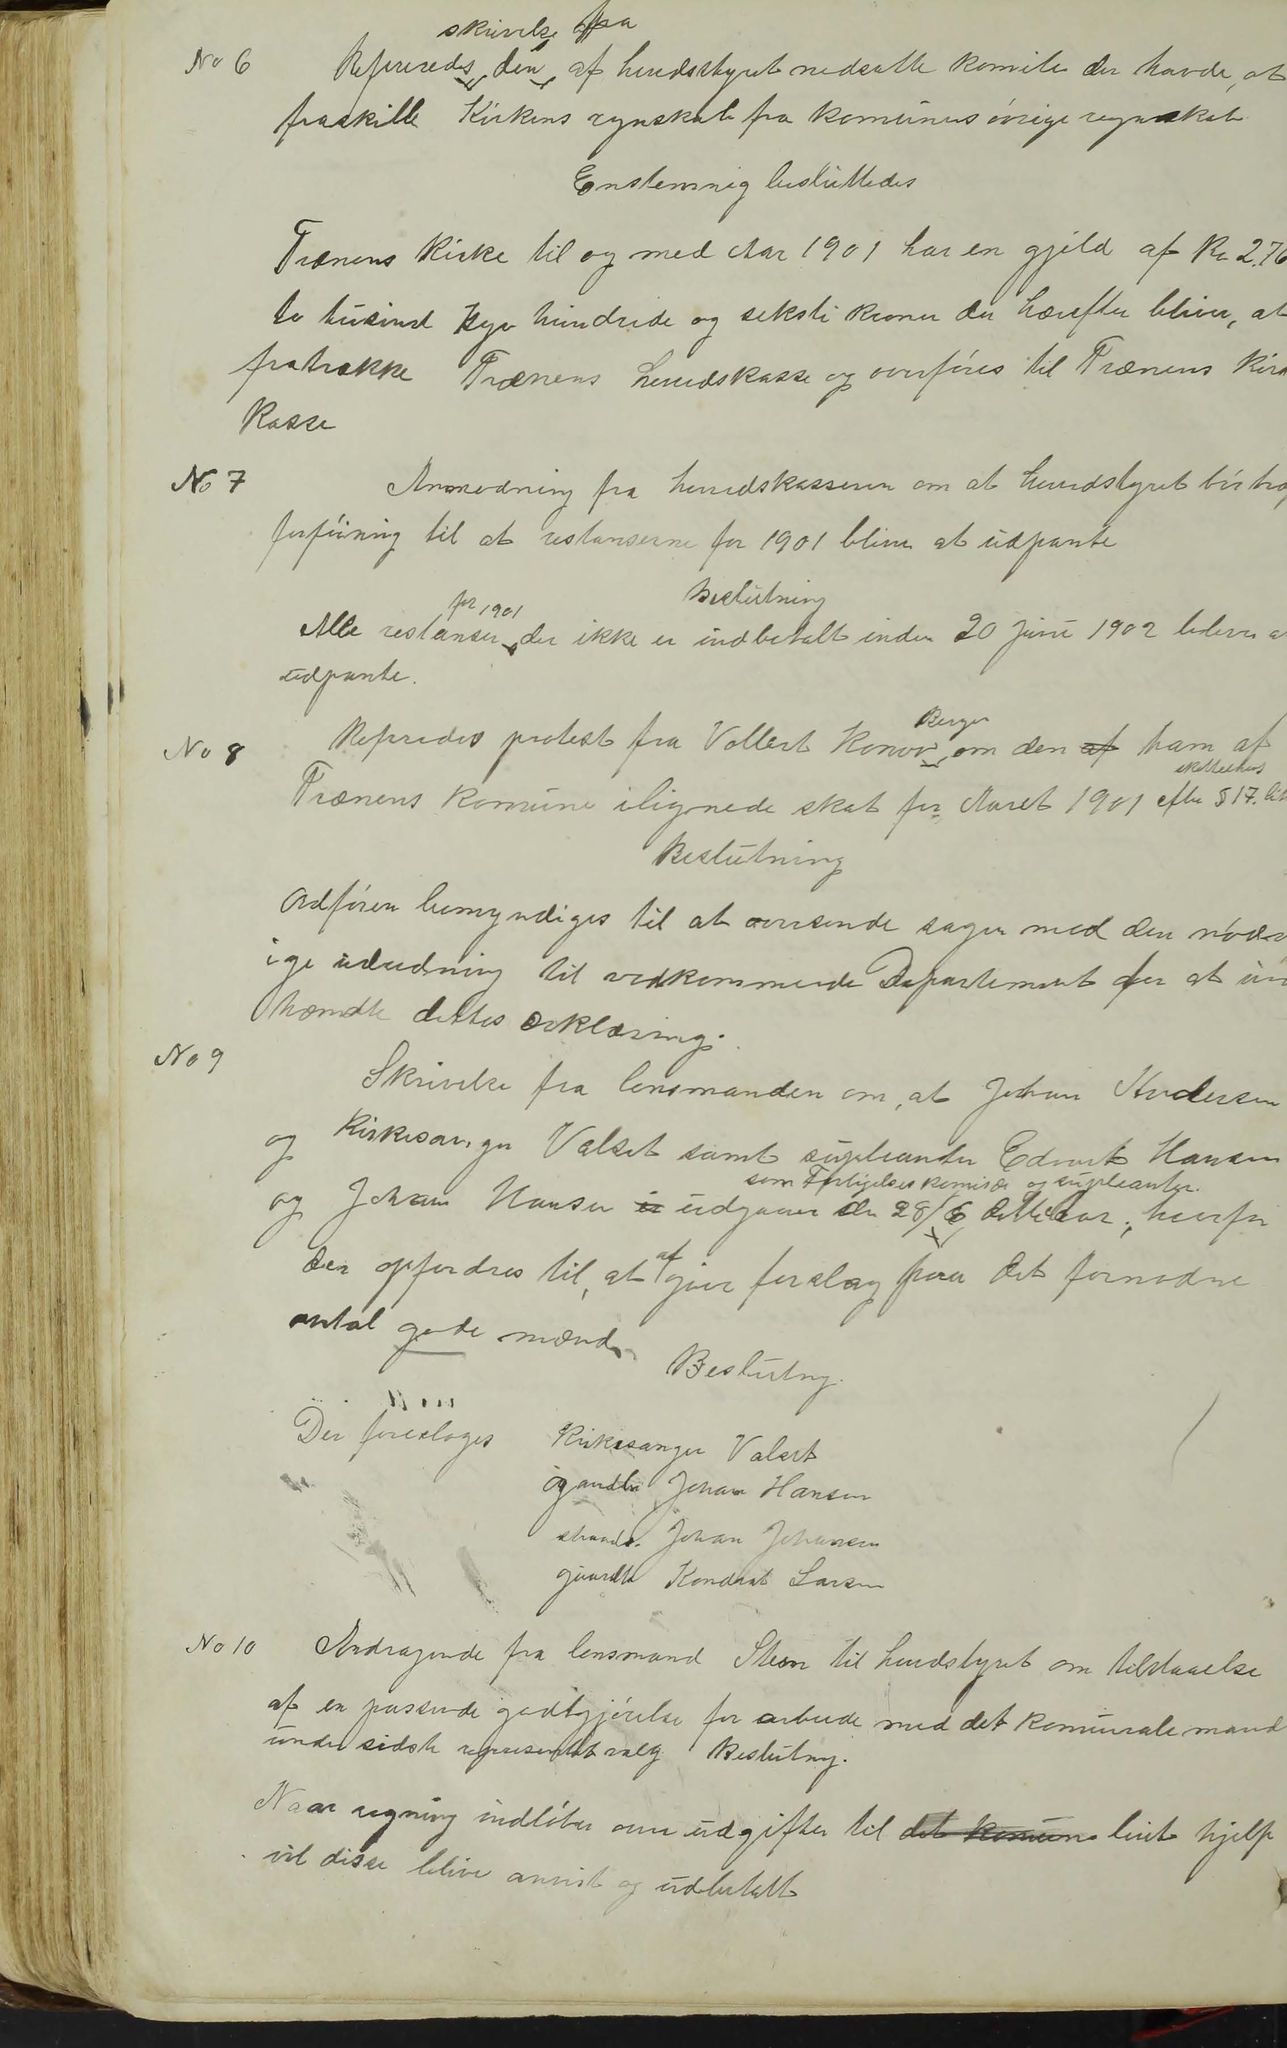 skrivelse fra
No 6 Refereredes den af heredsstyret nedsatte komite der havde, at
fraskille Kirkens regnskab fra komunens øvrige regnskab
Enstemmig besluttedes
Trænens Kirke til og med Aar 1901 har en gjeld af Kr 2.76
to tusind syv hundrede og seksti kroner der hærefter bliver, at
fratrække Trænens herredskasse og overføres til Trænens Kirk
Kasse
No 7 Anmodning fra herredskasseren om at herredstyret bør trag
forføining til at restanserne for 1901 bliver at udpante
Beslutning
for 1901
Alle restanser der ikke er indbetalt inden 20 Juni 1902 bliver a
udpante.
Berger
No 8 Refereredes protest fra Vollert Konow om den af ham af
skattelovens
Trænens komune ilignede skat for Aaret 1901 efter § 17. lit
Beslutning
Ordføren bemyndiges til at oversende sagen med den nødv
ige udredning til vedkommende Departement for at in
hændte dettes erklæring.
No 9
Skrivelse fra lensmanden om, at Johan Andersen
og Kirkesanger Valset samt supleanter Edvart Hansen
som Forligelseskomisær og supleanter.
og Johan Hansen er udgaaer den 28/6 dette aar, hvorfor
der opfordres til, at afgive forslag paa det fornødne
antal gode mænd
Beslutng.
Der foreslages Kirkesanger Valset
ogandler Johan Hansen
strands. Johan Johansen
gaardbr Kondrat Larsen
No 10 Andragende fra lensmand Steen til herredstyret om tilstaaelse
af en passende godtgjørelse for arbeide med det komunale mand
under sidste representantvalg Beslutng.
Naar regning indløber over udgifter til det komune leiet hjelp
vil disse blive anvist og udbetalt